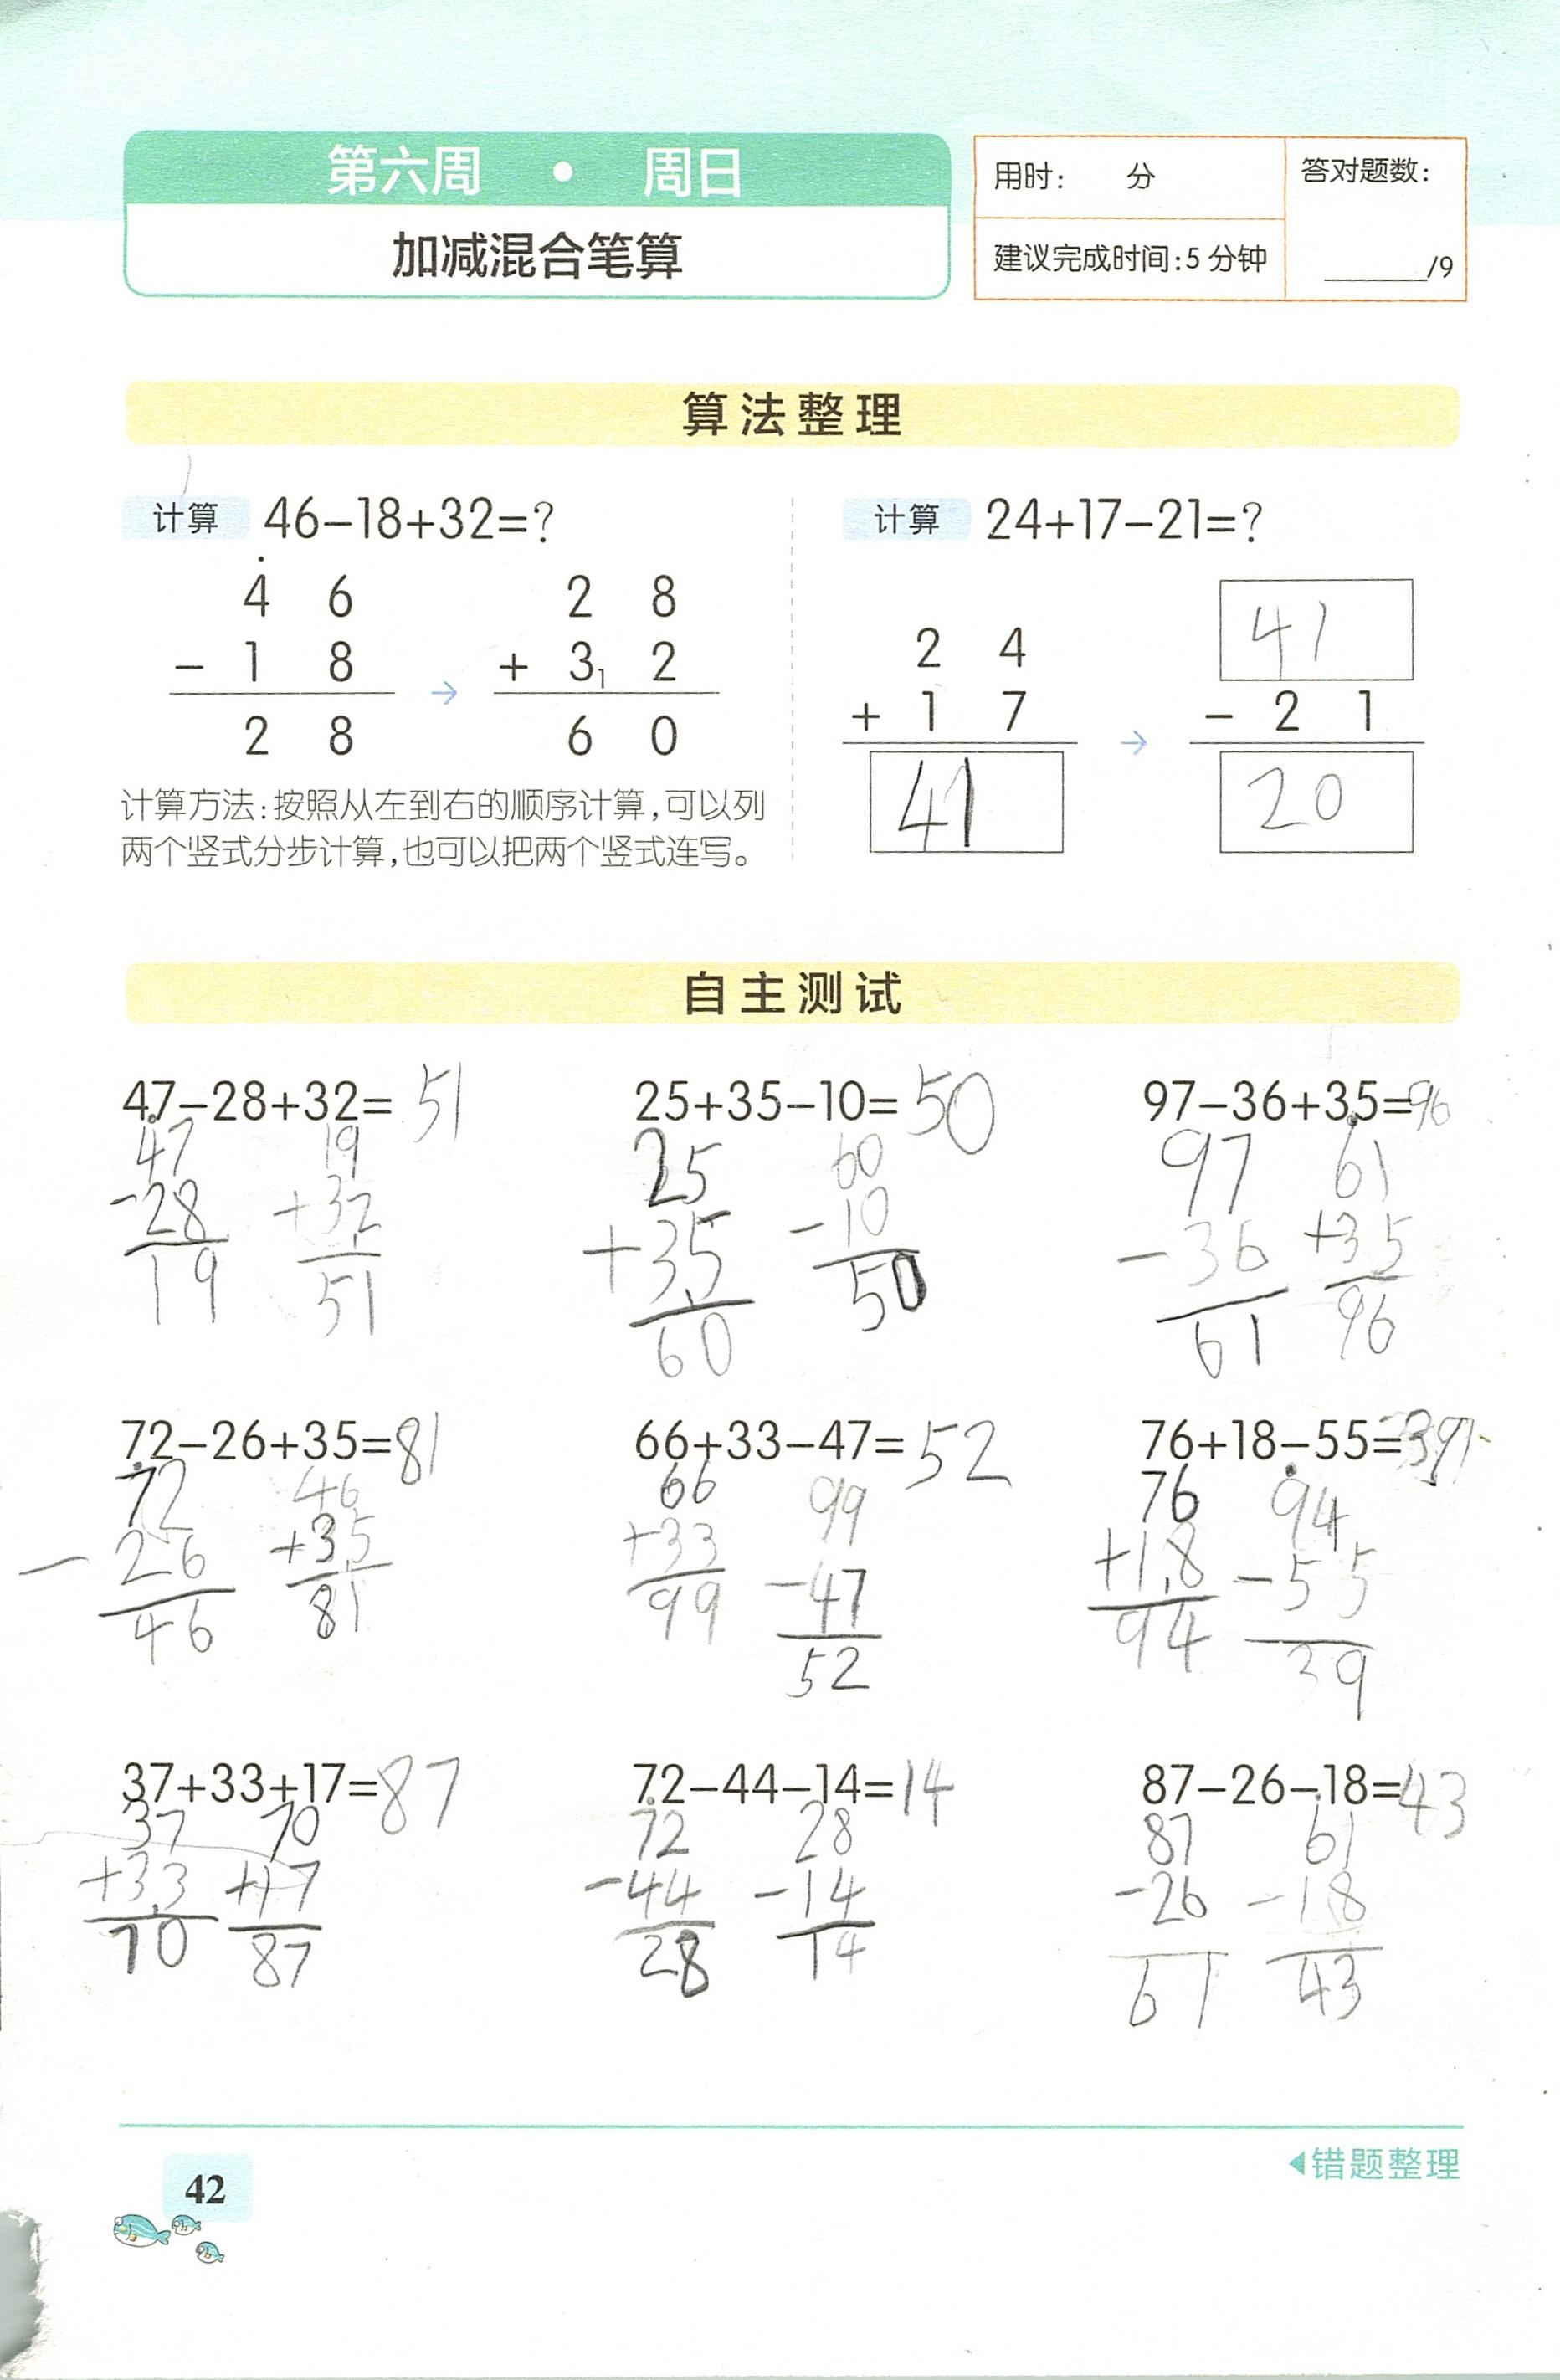 第六周 • 周日
加减混合笔算
用时: 分
建议完成时间:5分钟
答对题数:
______/9
算法整理
计算 46-18+32=?
4 6
- 1 8
2 8
→
2 8
+ 3₁ 2
6 0
计算方法:按照从左到右的顺序计算,可以列
两个竖式分步计算,也可以把两个竖式连写。
计算 24+17-21=?
2 4
+ 1 7
41
→
41
- 2 1
20
自主测试
47-28+32= 51
47
-28
19
19
+32
51
25+35-10= 50
25
+35
60
60
-10
50
97-36+35=96
97
-36
61
61
+35
96
72-26+35=81
72
- 26
46
46
+35
81
66+33-47= 52
66
+33
99
99
-47
52
76+18-55=
76
+18
94
94
-55
39
37+33+17=87
37
+33
70
70
+17
87
72-44-14=14
72
-44
28
28
-14
14
87-26-18=43
87
-26
61
61
-18
43
◀错题整理
42